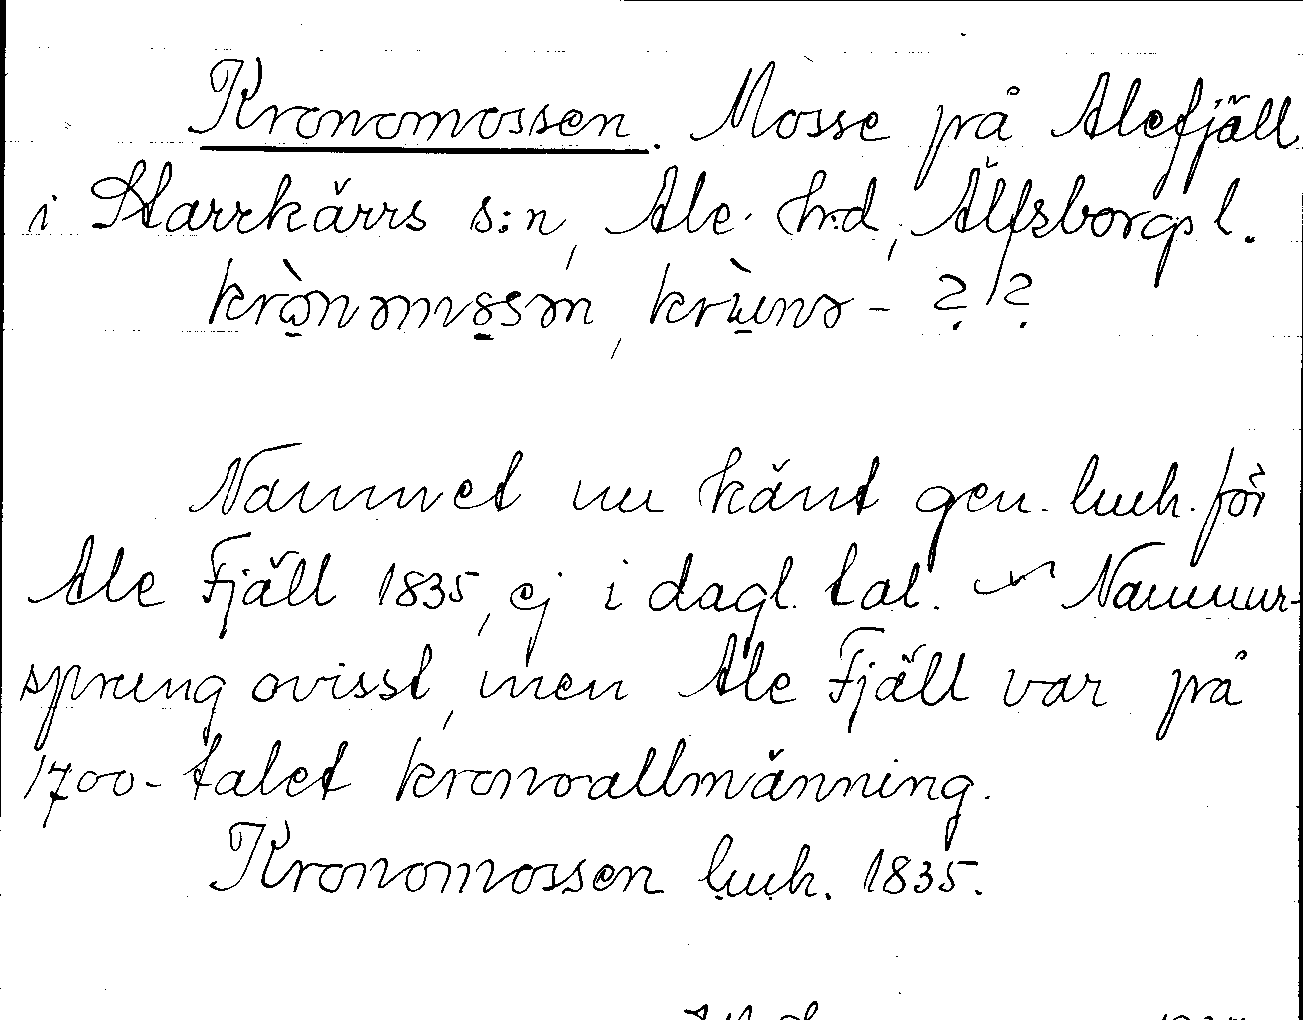 Kronomossen. Mosse på Alefjäll
i Starrkärrs s:n, Ale hrd, Älfsborgs l.
krònomossən, krùno- ? ?
Namnet nu känt gen. luuh. för
Ale Fjäll 1835, ej i dagl. tal. ~ Namnur-
sprung ovisst, men Ale Fjäll var på
1700-talet kronoallmänning.
Kronomossen luuh. 1835.